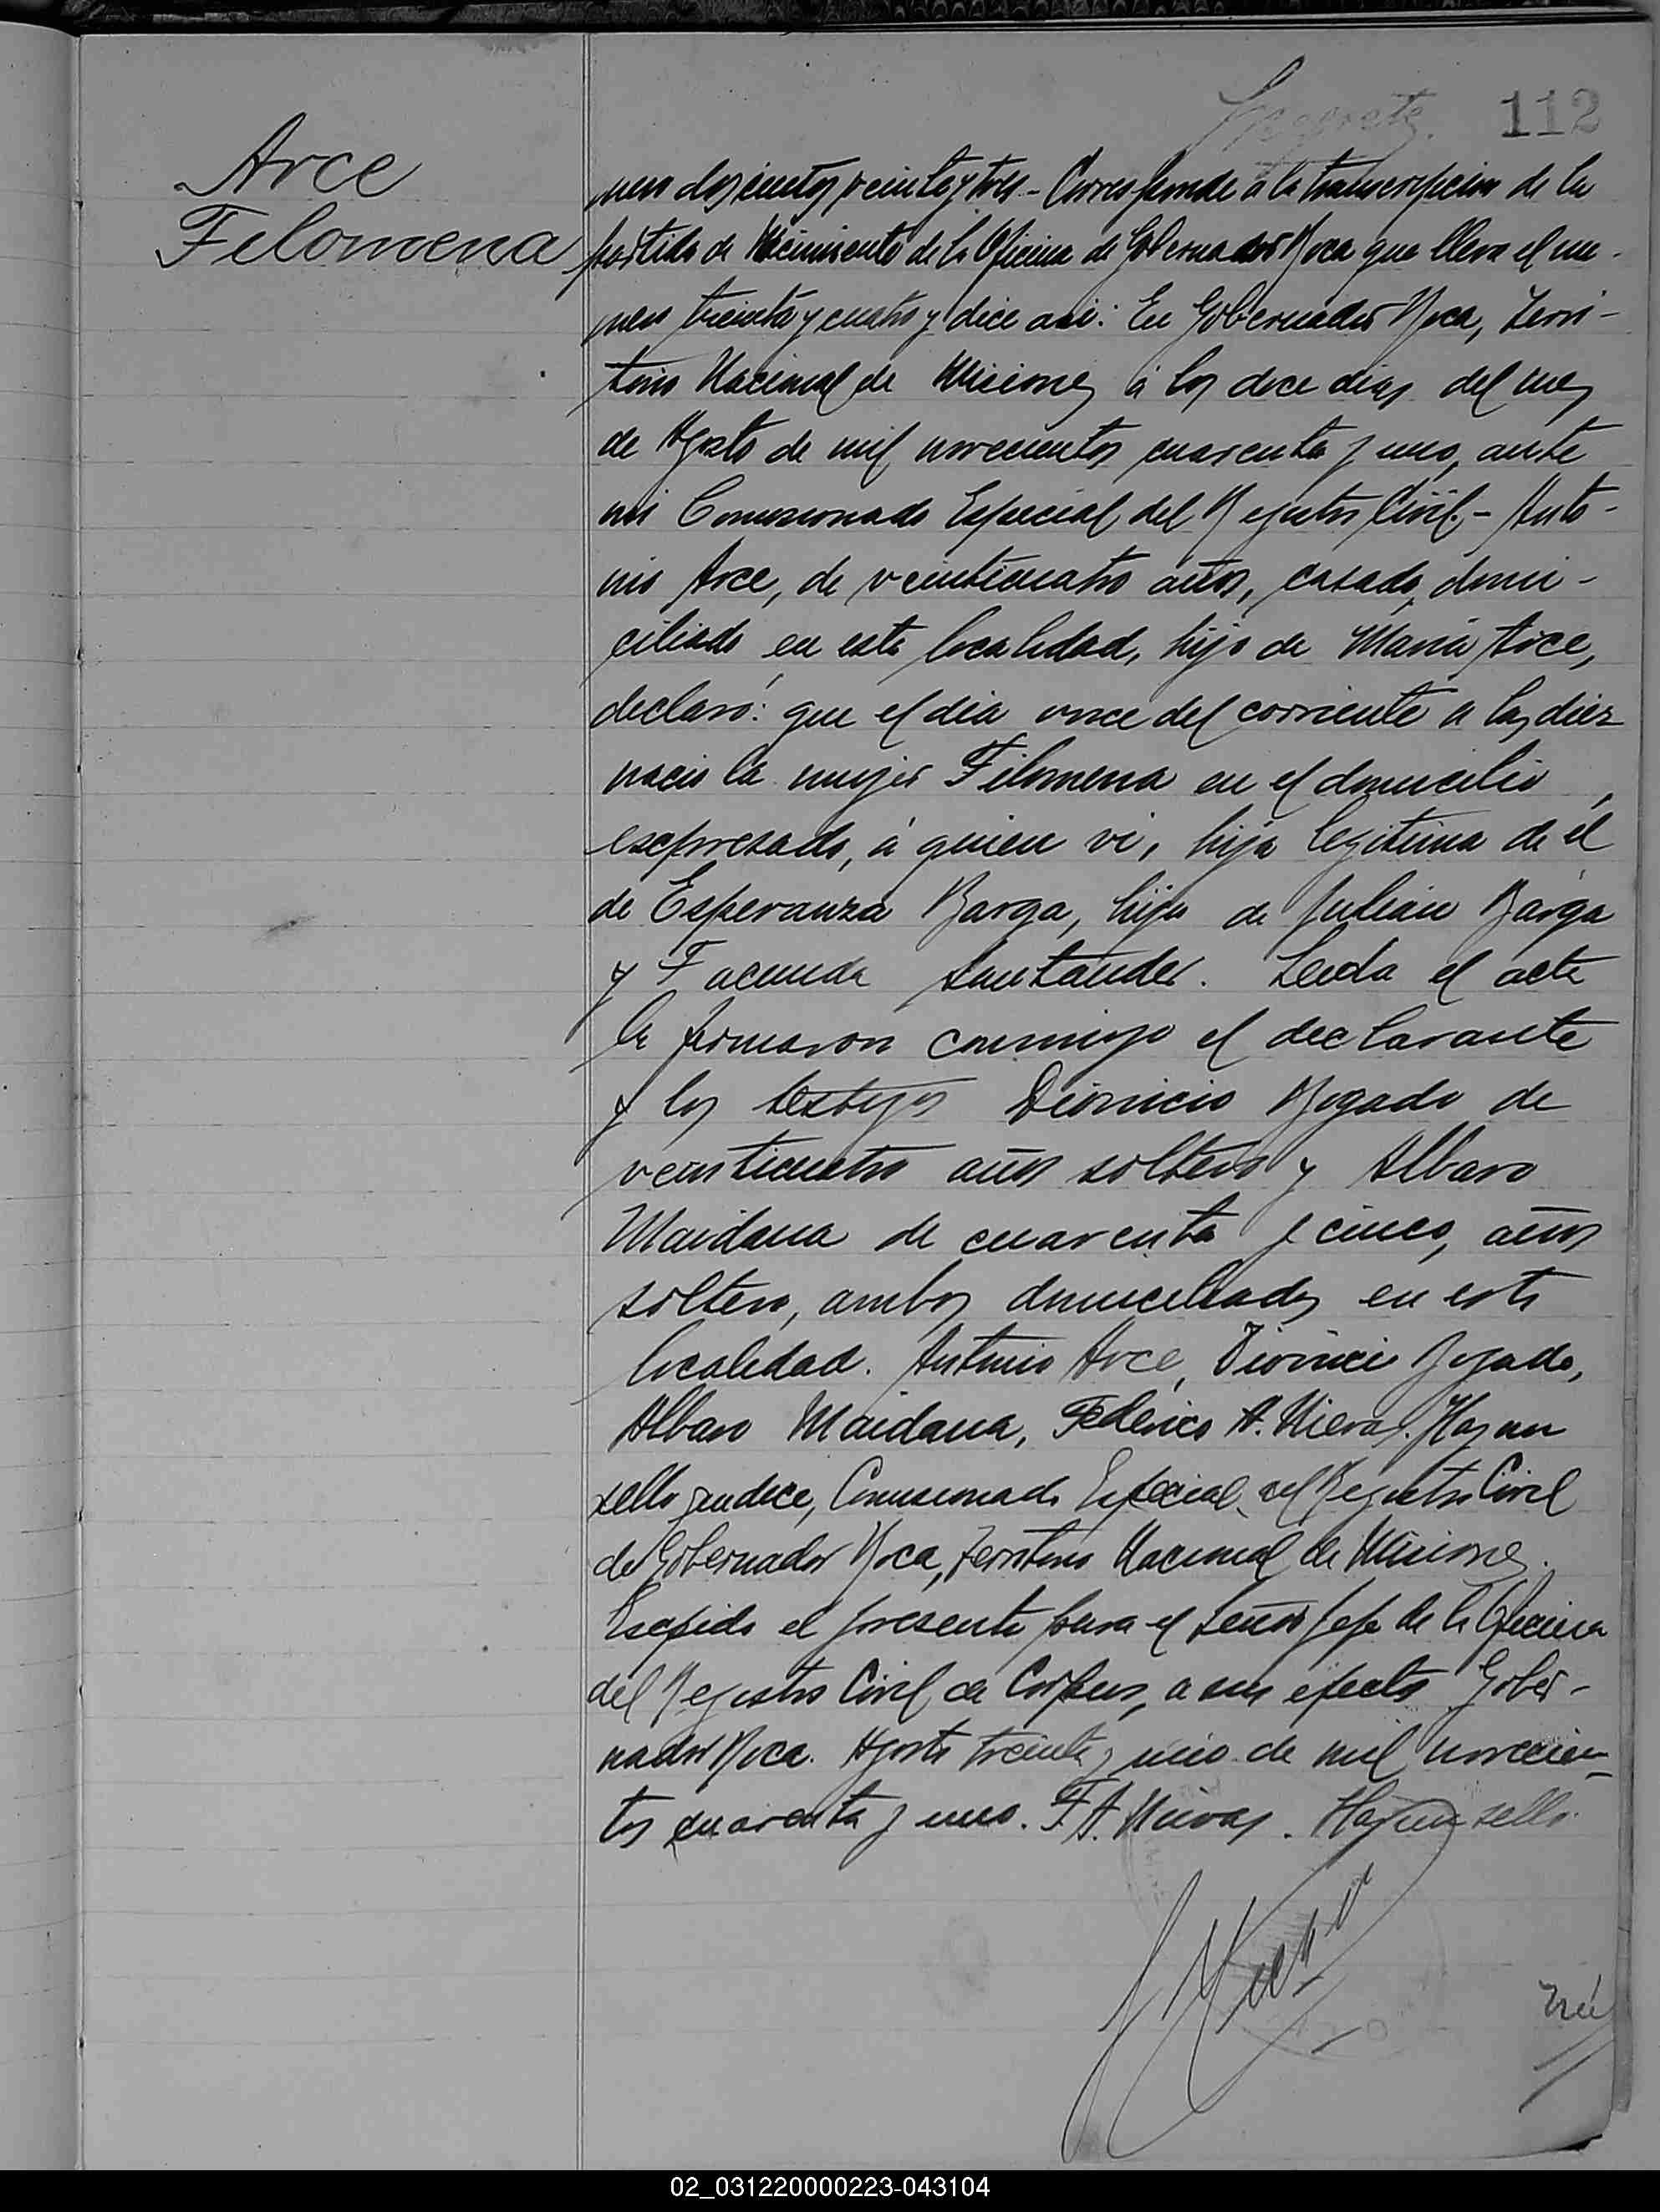 112
Arce
Filomena
mero doscientos veinte y tres.- Corresponde a la transcripcion de la
partida de Nacimiento de la Oficina de Gobernador Roca que lleva el nu-
mero treinta y cuatro y dice asi: En Gobernador Roca, Terri-
torio Nacional de Misiones á los doce dias del mes
de Agosto de mil novecientos cuarenta y uno, ante
mi Comisionado Especial del Registro Civil.- Anto-
nio Arce, de veinticuatro años, casado, domi-
ciliado en esta localidad, hijo de Maria Arce,
declaró: que el dia once del corriente a las diez
nacio la mujer Filomena en el domicilio
expresado, á quien vi, hija legitima de él
de Esperanza Barga, hija de Julian Barga
y Facunda Santander. Leida el acta
la firmaron conmigo el declarante
y los testigos Dionicio Bogado de
veinticuatro años soltero y Albaro
Maidana de cuarenta y cinco, años
soltero, ambos domiciliados en esta
localidad. Antonio Arce, Dionicio Bogado,
Albaro Maidana, Federico A. Nievas. Hay un
sello que dice, Comisionado Especial del Registro Civil
de Gobernador Roca, Territorio Nacional de Misiones.
Expido el presente para el Señor Jefe de la Oficina
del Registro Civil de Corpus, a sus efectos Gober-
nador Roca. Agosto treinta y uno de mil novecien-
tos cuarenta y uno. F. A. Nievas. Hay un sello.
Nú
02_031220000223-043104